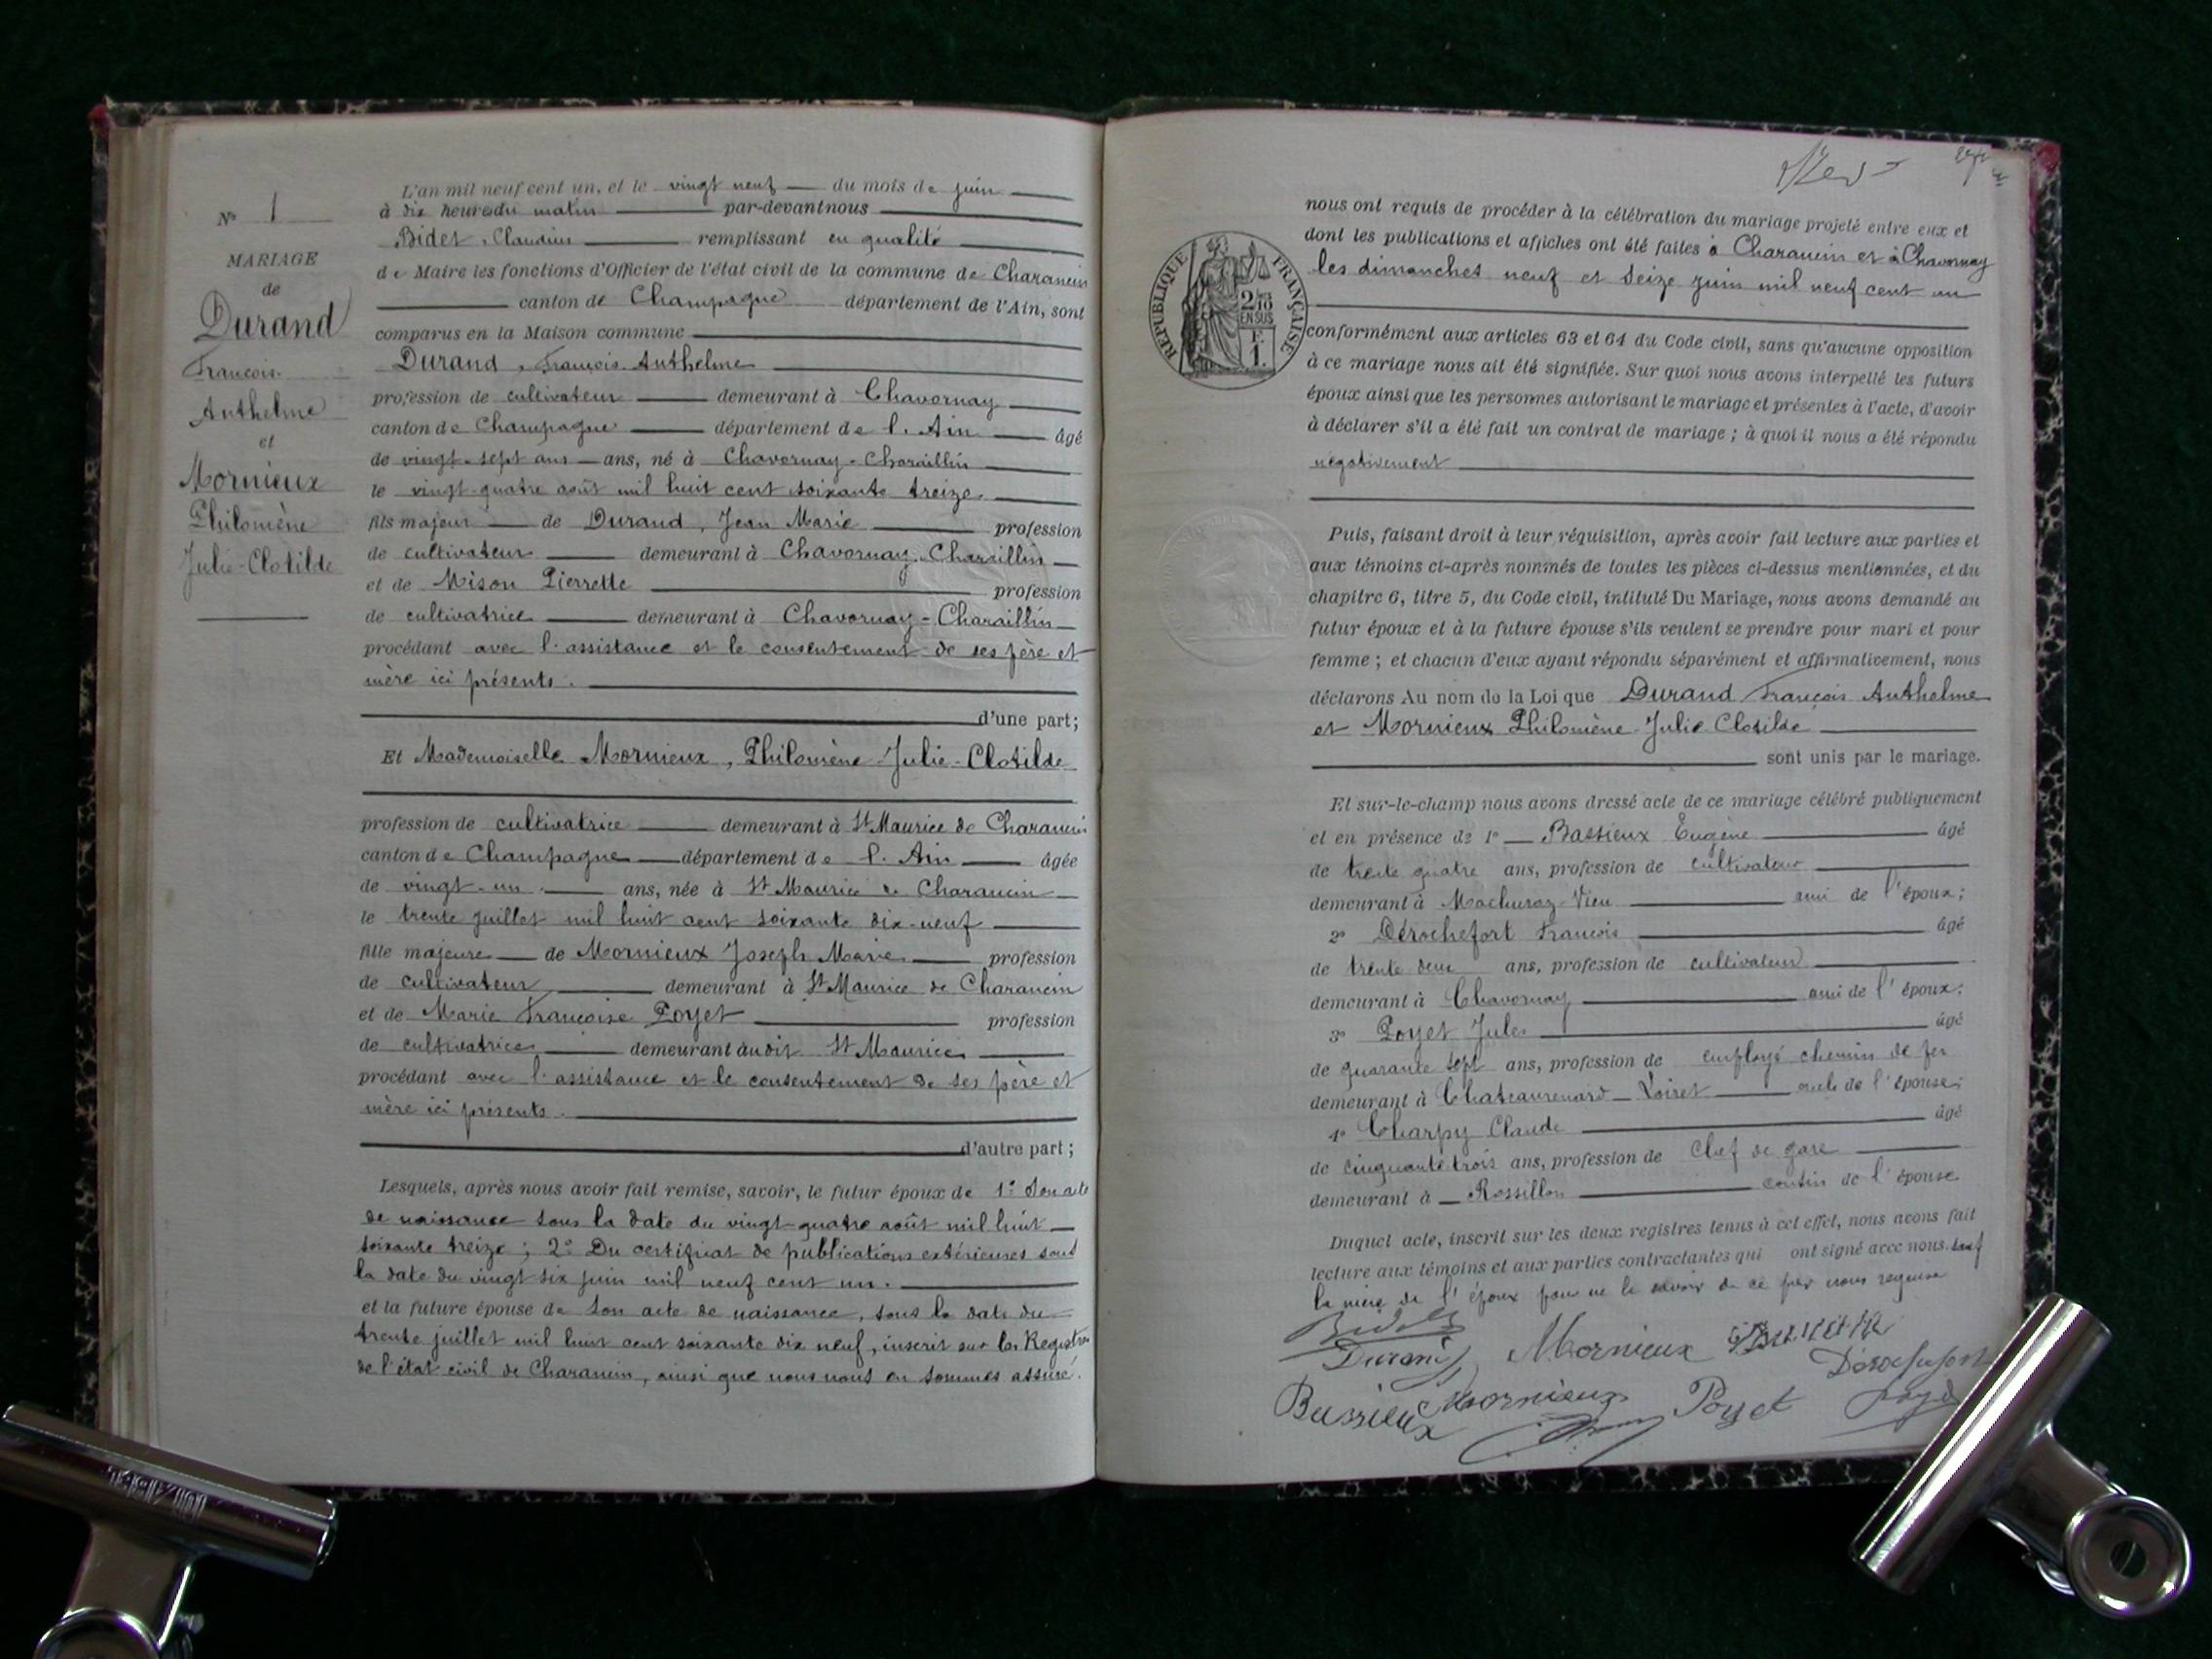 N° 1
MARIAGE
de
Durand
François
Anthelme
et
Mornieux
Philomène
Julie-Clotilde
L'an mil neuf cent un, et le vingt neuf du mois de juin
à dix heures du matin par-devant nous
Bidet, Claudius remplissant en qualité
de Maire les fonctions d'Officier de l'état civil de la commune de Charancin
canton de Champagne département de l'Ain, sont
comparus en la Maison commune
Durand, François Anthelme
profession de cultivateur demeurant à Chavornay
canton de Champagne département de l'Ain âgé
de vingt-sept ans ans, né à Chavornay-Charaillin
le vingt-quatre août mil huit cent soixante treize
fils majeur de Durand, Jean Marie profession
de cultivateur demeurant à Chavornay-Charaillin
et de Mison Pierrette profession
de cultivatrice demeurant à Chavornay-Charaillin
procédant avec l'assistance et le consentement de ses père et
mère ici présents.
d'une part;
Et Mademoiselle Mornieux, Philomène-Julie-Clotilde
profession de cultivatrice demeurant à St Maurice de Charancin
canton de Champagne département de l'Ain âgée
de vingt-un ans, née à St Maurice de Charancin
le trente juillet mil huit cent soixante dix-neuf
fille majeure de Mornieux Joseph Marie profession
de cultivateur demeurant à St Maurice de Charancin
et de Marie Françoise Poyet profession
de cultivatrice demeurant audit St Maurice
procédant avec l'assistance et le consentement de ses père et
mère ici présents.
d'autre part;
Lesquels, après nous avoir fait remise, savoir, le futur époux de 1° Son acte
de naissance sous la date du vingt-quatre août mil huit
soixante treize; 2° Du certificat de publications extérieures sous
la date du vingt six juin mil neuf cent un.
et la future épouse de Son acte de naissance, sous la date du
trente juillet mil huit cent soixante dix neuf, inscrit sur les Registres
de l'état civil de Charancin, ainsi que nous nous en sommes assuré.
RÉPUBLIQUE FRANÇAISE
2/10
EN SUS
F.
1
nous ont requis de procéder à la célébration du mariage projeté entre eux et
dont les publications et affiches ont été faites à Charancin et à Chavornay
les dimanches neuf et seize juin mil neuf cent un
conformément aux articles 63 et 64 du Code civil, sans qu'aucune opposition
à ce mariage nous ait été signifiée. Sur quoi nous avons interpellé les futurs
époux ainsi que les personnes autorisant le mariage et présentes à l'acte, d'avoir
à déclarer s'il a été fait un contrat de mariage; à quoi il nous a été répondu
négativement
Puis, faisant droit à leur réquisition, après avoir fait lecture aux parties et
aux témoins ci-après nommés de toutes les pièces ci-dessus mentionnées, et du
chapitre 6, titre 5, du Code civil, intitulé Du Mariage, nous avons demandé au
futur époux et à la future épouse s'ils veulent se prendre pour mari et pour
femme; et chacun d'eux ayant répondu séparément et affirmativement, nous
déclarons Au nom de la Loi que Durand François Anthelme
et Mornieux Philomène-Julie Clotilde
sont unis par le mariage.
Et sur-le-champ nous avons dressé acte de ce mariage célébré publiquement
et en présence de 1° Bassieux Eugène âgé
de trente quatre ans, profession de cultivateur
demeurant à Machuraz-Vieu ami de l'époux;
2° Dérochefort François âgé
de trente deux ans, profession de cultivateur
demeurant à Chavornay ami de l'époux;
3° Poyet Jules âgé
de quarante sept ans, profession de employé chemin de fer
demeurant à Chateaurenard-Loiret oncle de l'épouse;
4° Charpy Claude âgé
de cinquante trois ans, profession de Chef de gare
demeurant à Rossillon cousin de l'épouse
Duquel acte, inscrit sur les deux registres tenus à cet effet, nous avons fait
lecture aux témoins et aux parties contractantes qui ont signé avec nous. Sauf
la mère de l'époux pour ne le savoir de ce par nous requise
Durand Mornieux
Bassieux Mornieux Poyet